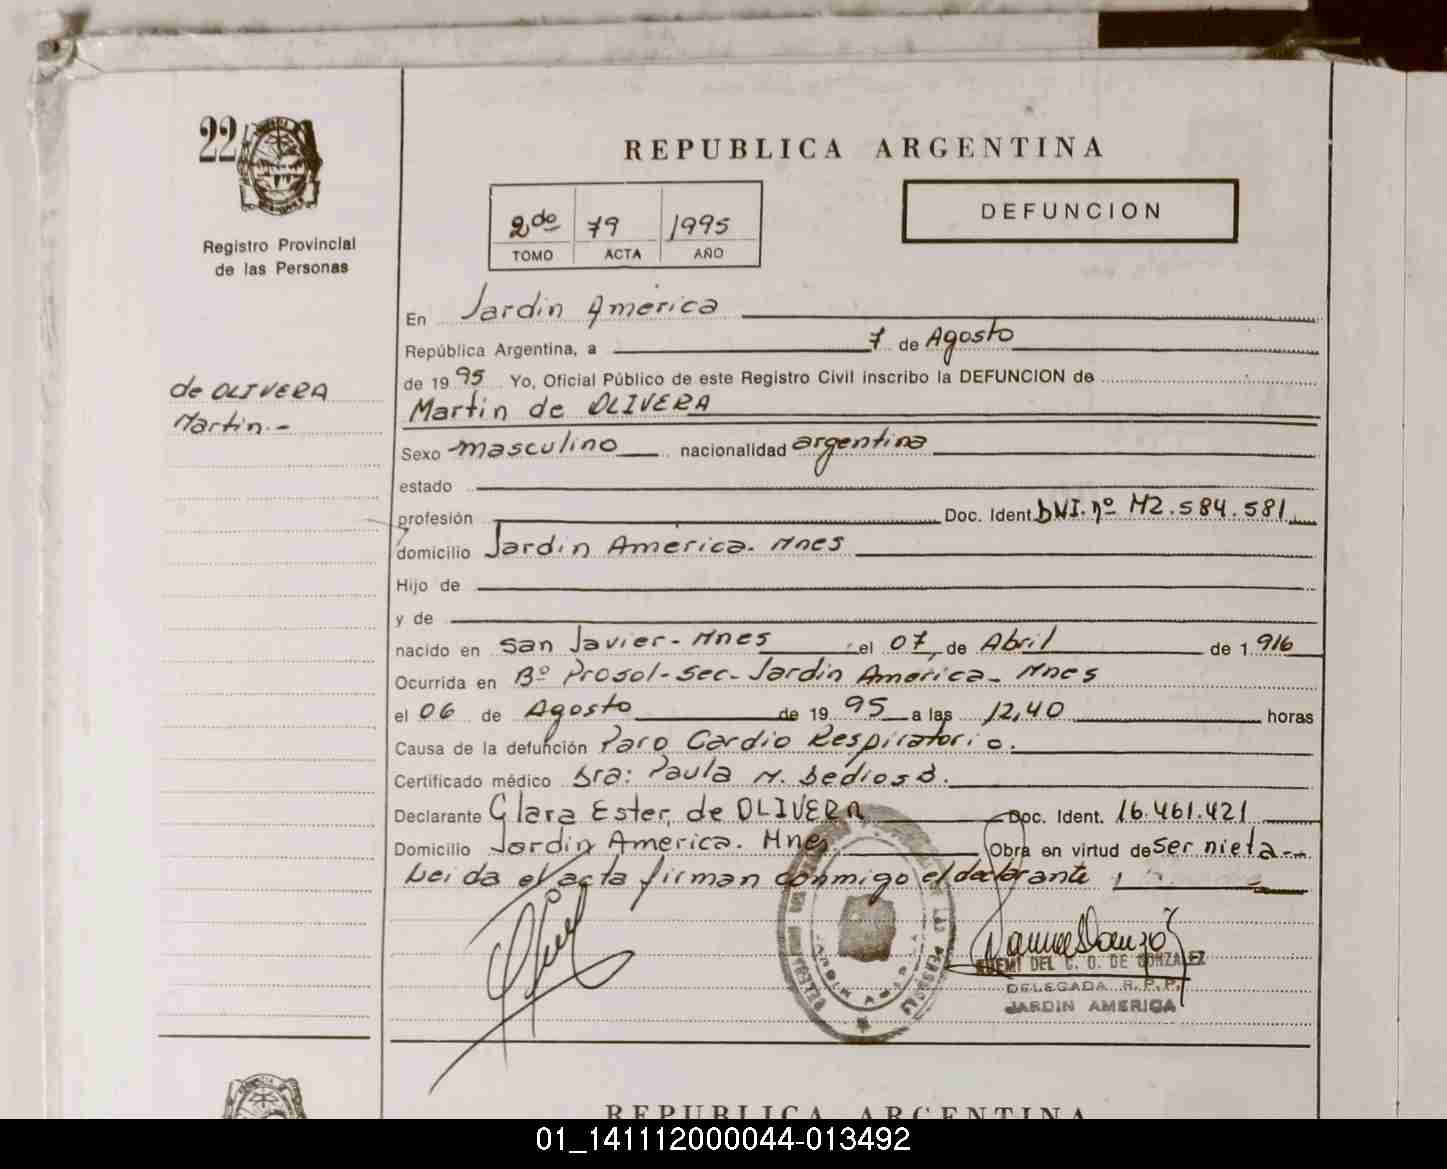 22
Registro Provincial
de las Personas
REPUBLICA ARGENTINA
2do 79 1995
TOMO ACTA AÑO
DEFUNCION
de OLIVERA
Martin.-
En Jardin América
República Argentina, a 7 de Agosto
de 1995 Yo, Oficial Público de este Registro Civil inscribo la DEFUNCION de
Martin de OLIVERA
Sexo masculino nacionalidad argentina
estado
profesión Doc. Ident. DNI. nº M2.584.581
domicilio Jardin America. Mnes
Hijo de
y de
nacido en San Javier - Mnes el 07 de Abril de 1.916
Ocurrida en Bº Prosol-Sec- Jardin America - Mnes
el 06 de Agosto de 1995 a las 12,40 horas
Causa de la defunción Paro Cardio Respiratorio.
Certificado médico Dra: Paula M.
Declarante Clara Ester de OLIVERA Doc. Ident. 16.461.421
Domicilio Jardin America. Mnes Obra en virtud de ser nieta
Leida el acta firman conmigo el declarante
DEL C. D. DE GONZALEZ
DELEGADA R. P. P.
JARDIN AMERICA
REPUBLICA ARGENTINA
01_141112000044-013492